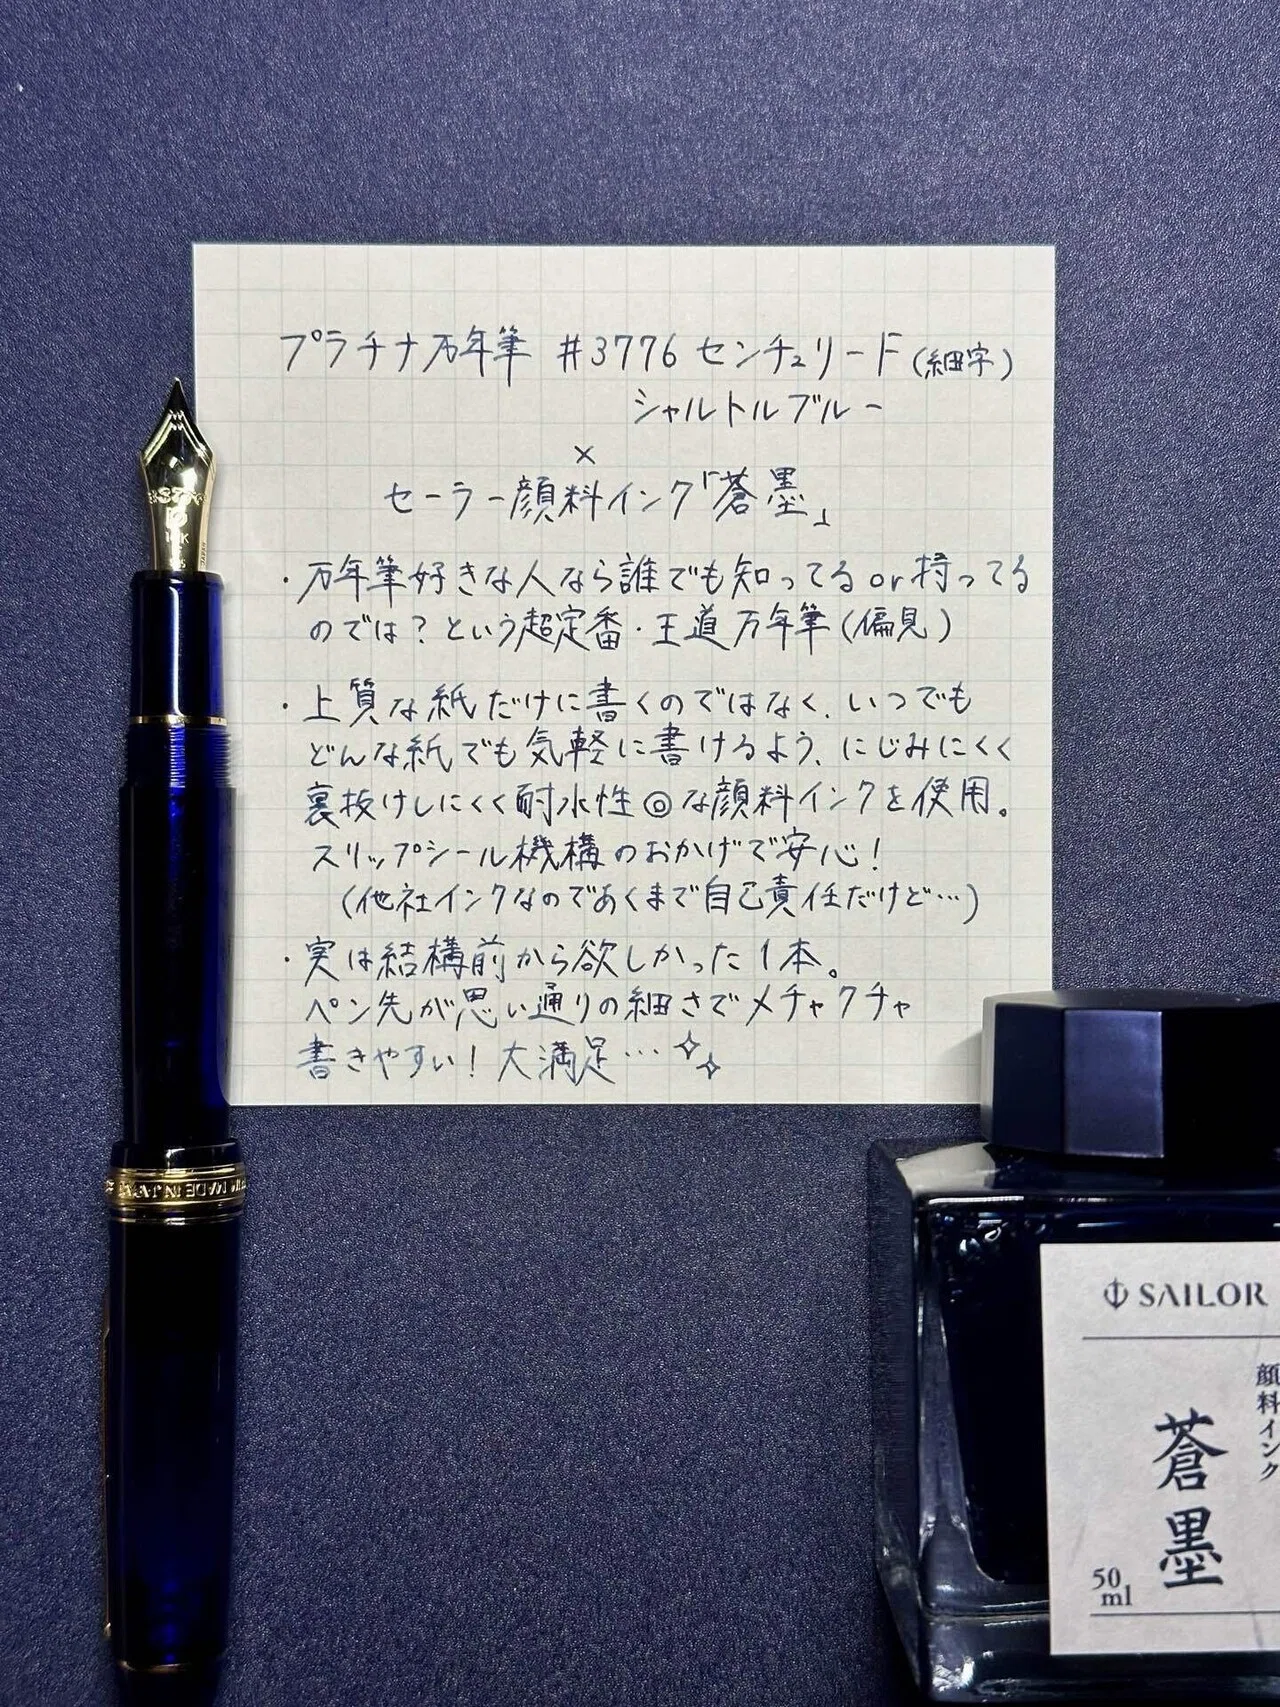 プラチナ万年筆 #3776 センチュリード(細字)
シャルトルブルー
×
セーラー顔料インク「蒼墨」
・万年筆好きな人なら誰でも知ってるor持ってる
のでは?という超定番・王道万年筆(偏見)
・上質な紙だけに書くのではなく、いつでも
どんな紙でも気軽に書けるよう、にじみにくく
裏抜けしにくく耐水性◎な顔料インクを使用。
スリップシール機構のおかげで安心!
(他社インクなのであくまで自己責任だけど…)
・実は結構前から欲しかった1本。
ペン先が思い通りの細さでメチャクチャ
書きやすい!大満足…
14K
MADE IN JAPAN
SAILOR
顔料インク
蒼墨
50
ml